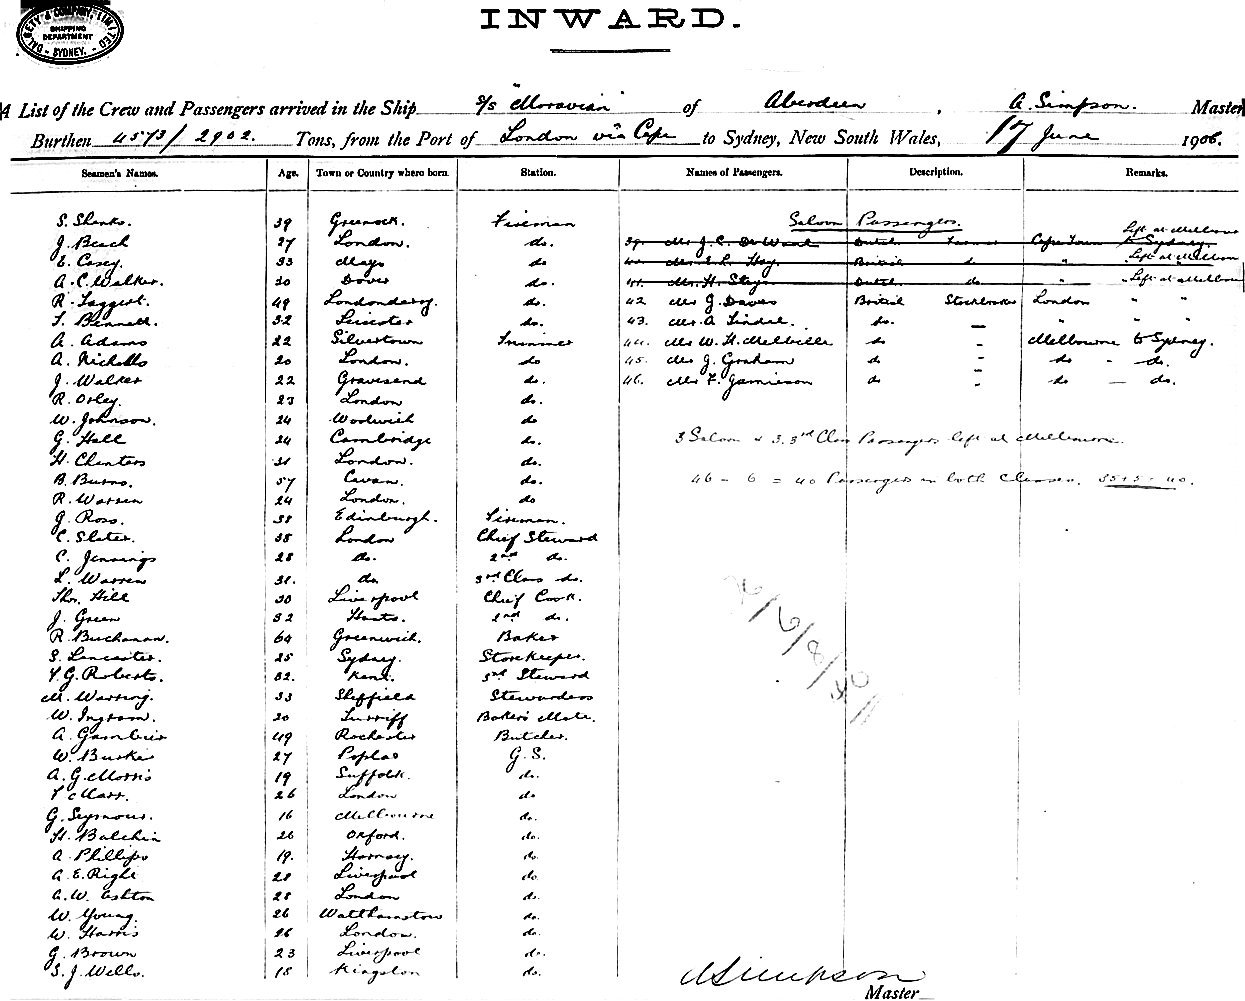 DALGETY & COMPANY, LIMITED
SHIPPING
DEPARTMENT
SYDNEY.
INWARD.
A List of the Crew and Passengers arrived in the Ship s/s "Moravian" of Aberdeen, A. Simpson. Master
Burthen 4573/2902. Tons, from the Port of London via Cape to Sydney, New South Wales, 17 June 1906.
Seamen's Names. Age. Town or Country where born. Station. Names of Passengers. Description. Remarks.
S. Shanks. 39 Greenock. Fireman Saloon Passengers.
Left at Melbourne
J. Beach 27 London. do. 39. Mr J. C. De Waal Dutch Farmer Cape Town to Sydney.
E. Casey. 33 Mayo do 40. Hay British do " Left at Melbourn
A. C. Walker. 20 Dover do 41. Mr. H. Dutch do " Left at Melbourn
R. Taggert. 49 Londonderry. do. 42. Mr J. Davis British Stockbroker London " "
T. Bennett. 32 Leicester do. 43. Mr. A. Lindal. do. — " " "
A. Adams 22 Silvertown Trimmer 44. Mr W. H. Melville do - Melbourne to Sydney.
A. Nicholls 20 London. do 45. Mr J. Graham do - do - do.
J. Walker 22 Gravesend do. 46. Mr F. Jamieson do - do — do.
R. Orley. 23 London do.
W. Johnson. 24 Woolwich do
G. Hall 24 Cambridge do. 3 Saloon & 3. 3rd Class Passengers left at Melbourne.
H. Chenters 31 London. do.
B. Burns. 57 Cavan. do. 46 - 6 = 40 Passengers in both Classes. 35+5=40.
R. Warren 24 London. do
J. Ross. 38 Edinburgh. Fireman.
C. Slater. 38 London Chief Steward
C. Jennings 28 do. 2nd do.
L. Warren 31. do 3rd Class do.
Thos. Hill 30 Liverpool Chief Cook.
J. Green 32 Hants. 2nd do.
R. Buchanan. 64 Greenwich. Baker
S. Lancaster. 25 Sydney. Storekeeper.
V. G. Roberts. 32. Kent. 3rd Steward
M. Warring. 33 Sheffield Stewardess
W. Ingram. 20 Turriff Baker's Mate.
A. Gambier 49 Rochester Butcher.
W. Burke 27 Poplar G. S.
A. G. Morris 19 Suffolk. do.
Marr. 26 London do
G. Seymour. 16 Melbourne do.
H. Balchin 26 Oxford. do.
A. Phillips 19. Hornsey. do.
A. E. Right 28 Liverpool do
A. W. Ashton 28 London do.
W. Young. 26 Walthamstow do.
W. Harris 26 London. do.
G. Brown 23 Liverpool do.
S. J. Wells. 18 Kingston do.
A Simpson
Master